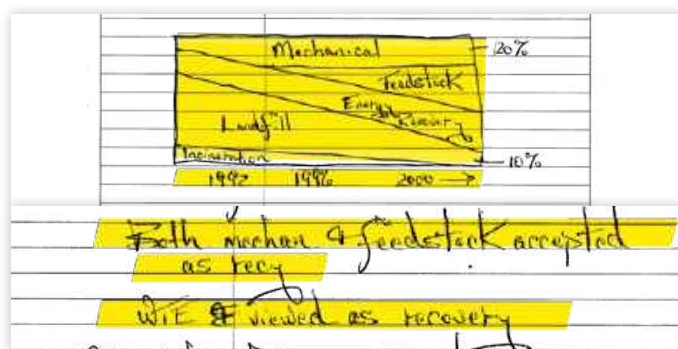 Mechanical
20%
Feedstock
Energy
Recovery
Landfill
Incineration
10%
1992 1996 2000 →
Both mechan & feedstock accepted
as recy
WTE viewed as recovery